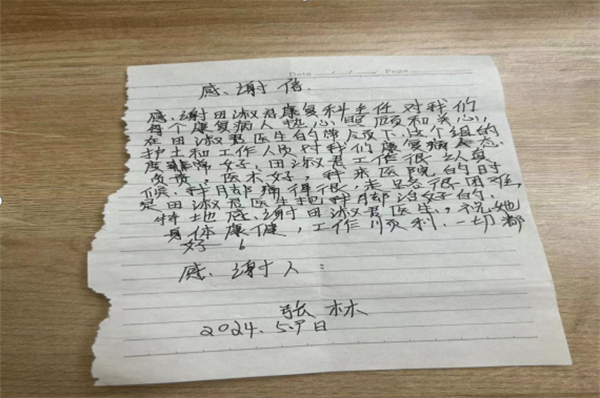 Date / / Page
感谢信
感谢田淑君康复科主任对我们
每个康复病人热心照顾和关心,
在田淑君医生的带领下,这个组的
护士和工作人员对我们康复病人态
度非常好,田淑君工作很认真
负责,医术好,我来医院的时
候,我脚痛得很,走路很困难,
是田淑君医生把我脚治好的,
特地感谢田淑君医生,祝她
身体康健,工作顺利,一切都
好!
感谢人:
张林
2024.5.9日